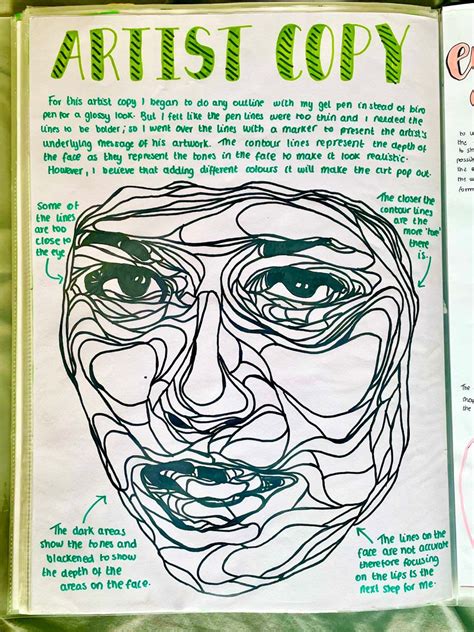 ARTIST COPY
For this artist copy I began to do any outline with my gel pen instead of biro
pen for a glossy look. But I felt like the pen lines were too thin and I needed the
lines to be bolder; so I went over the lines with a marker to present the artist's
underlying message of his artwork. The contour lines represent the depth of
the face as they represent the tones in the face to make it look realistic.
However, I believe that adding different colours it will make the art pop out.
Some of
the lines
are too
close to
the eye.
The closer the
contour lines
are the
more 'tone'
there
is.
The dark areas
show the tones and
blackened to show
the depth of the
areas on the face.
The lines on the
face are not accurate
therefore focusing
on the lips is the
next step for me.